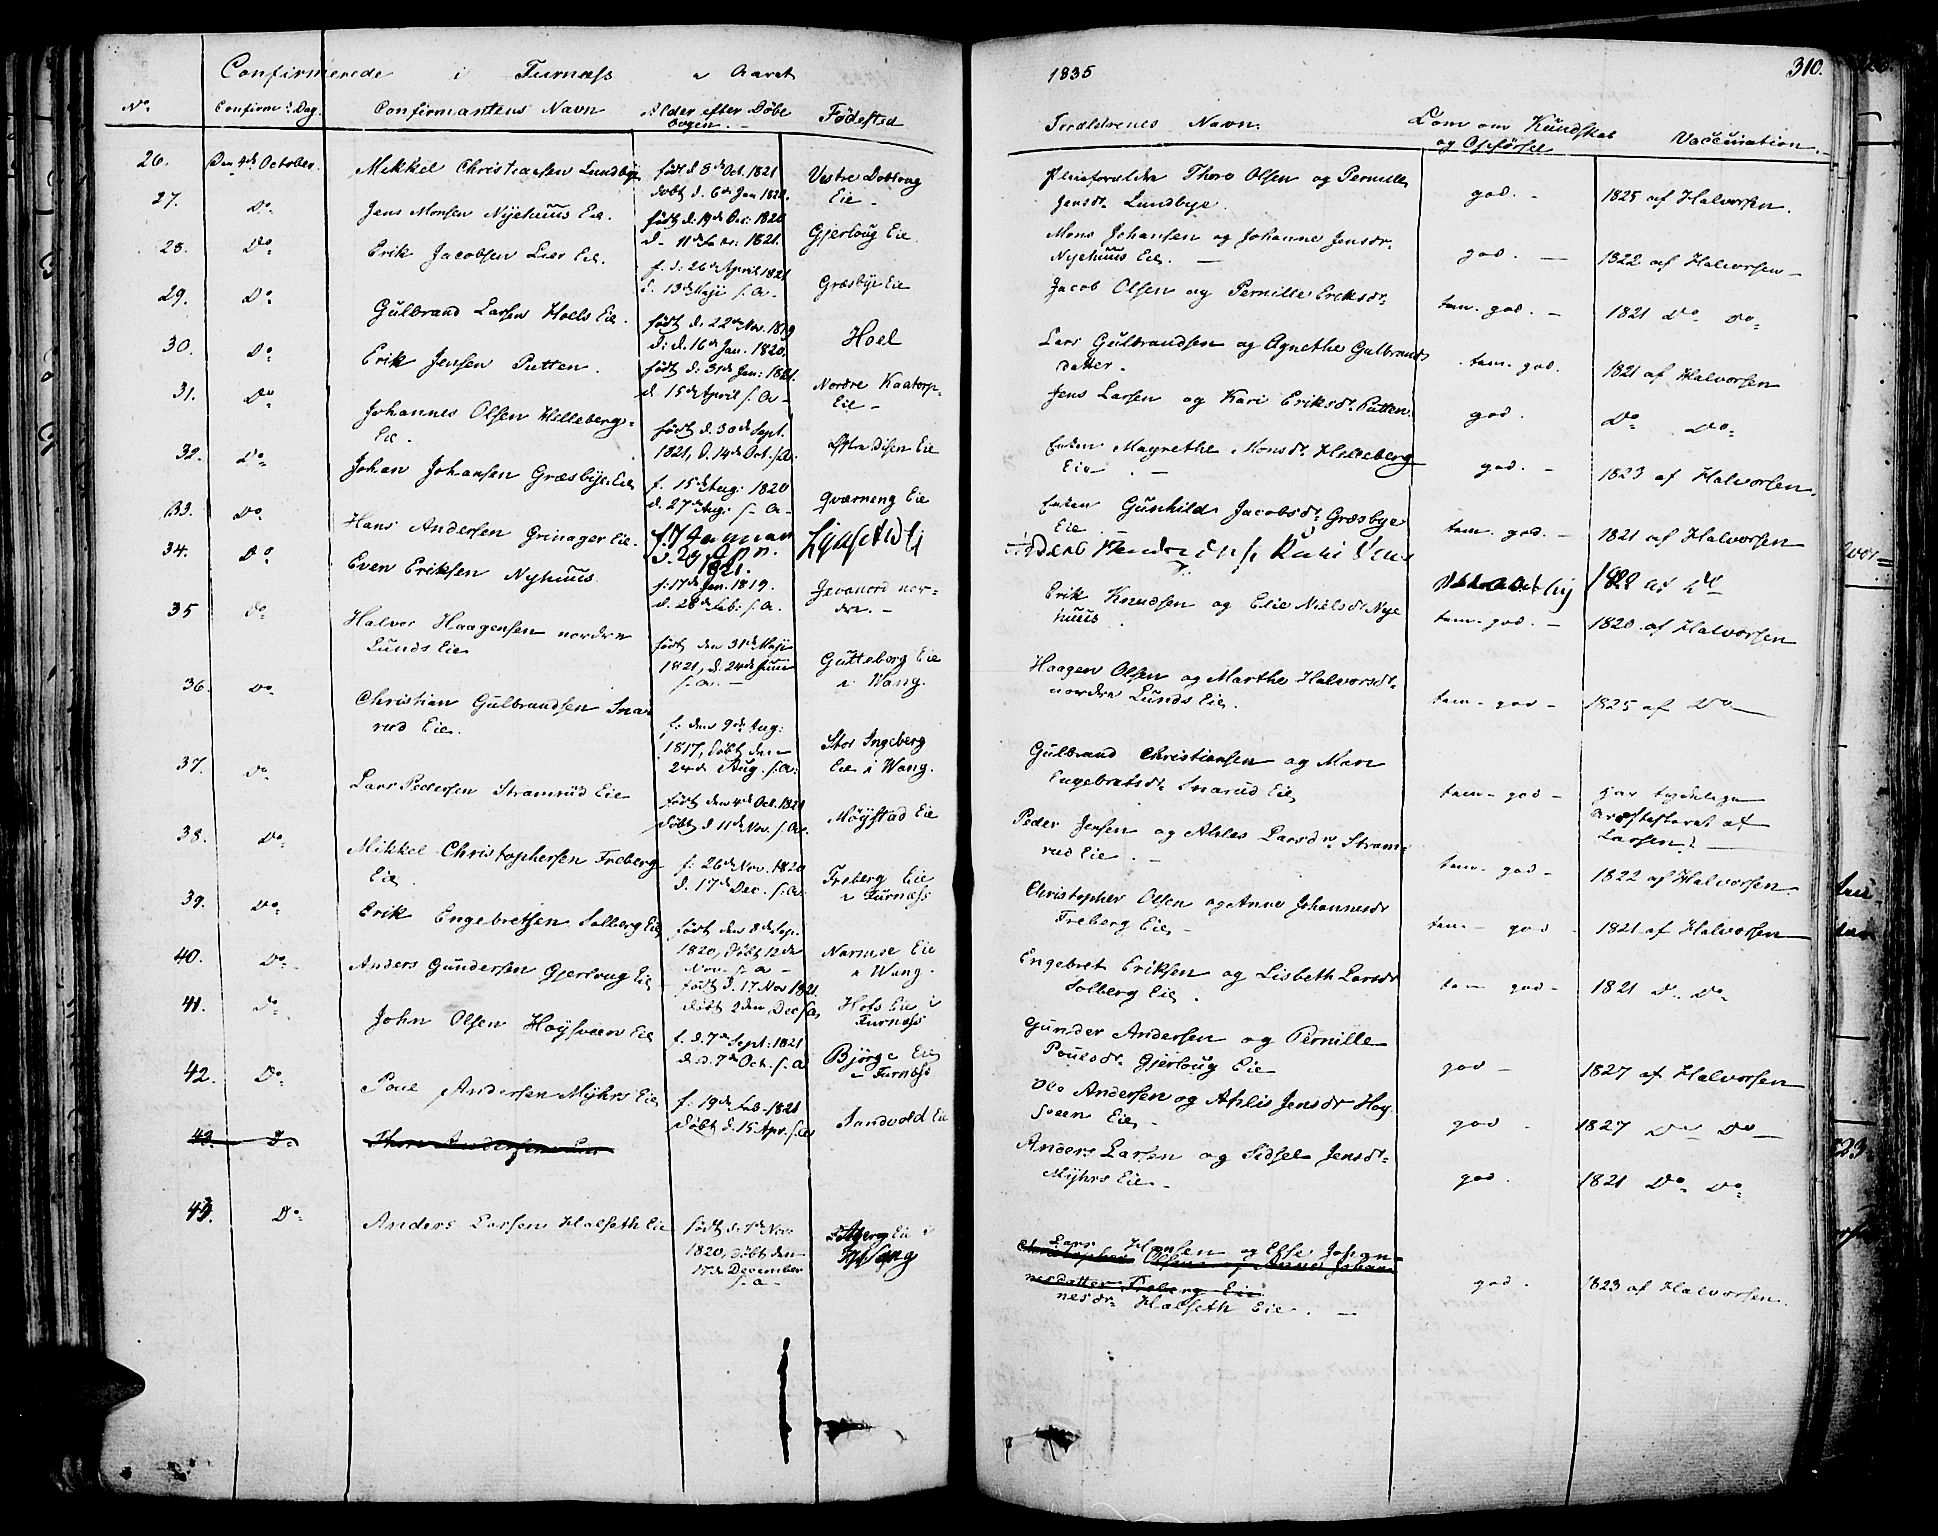 Confirmerede i Furnæss i Aaret 1835 310.
No Confirm: Dag. Confirmantens Navn Alder efter Døbe Fødested Foræltrenes Navn. Dom om Kundskab Vaccination.
bogen. og Opførsel
26. Den 4de October. Mikkel Christiansen Lundbye født d. 5te Oct. 1821 Vestre Dobloug Pleieforældre Thore Olsen og Pernille god. 1825 af Halvorsen.
døbt d. 6te Jan 1822. Eie Jensdr. Lundbye.
27. Do Jens Monsen Nyehuus Eie. født d. 19de Dec: 1820 Gjerloug Eie. Mons Johansen og Johanne Jensdr. god. 1822 af Halvorsen
d. 11te Febr: 1821. Nyehuus Eie.
28. Do Erik Jacobsen Lier Eie. f. d. 26de April 1821 Græsbye Eie Jacob Olsen og Pernille Eriksdr. tem. god. 1821 Do Do
d. 13de Maji s. A.
29. Do Gulbrand Larsen Hoels Eie. født d. 22de Nov. 1819 Hoel Lars Gulbrandsen og Agnethe Gulbrands tem. god. 1821 af Halvorsen
d: d. 16de Jan. 1820. datter.
30. Do Erik Jensen Putten. født d. 31te Jan: 1821. Nordre Kaatorp Jens Larsen og Kari Eriksdr. Putten. god. Do Do
d. 15de April s. A. Eie
31. Do Johannes Olsen Helleberg- født d. 30de Sept. Østre Disen Eie Enken Magrethe Monsdr. Helleberg god. 1823 af Halvorsen.
Eie. 1821, d. 14de Oct. s. A. Eie
32. Do Johan Johansen Græsbye Eie f. 15de Aug: 1820 Qværneng Eie Enken Gunhild Jacobsdr. Græsbye tem. god. 1821 af Halvorsen
d. 27de Aug. s. A. Eie
33. Do Hans Andersen Grinager Eie. f. 7 Januar
d. 29 Apr.
1821.
34. Do Even Eriksen Nyhuus f: 17de Jan. 1819. Jevanord nor- Erik Knudsen og Elie Nielsdr. Nye tem. god. 1820 af Halvorsen
d. 28de Feb: s. A. dre. huus
35 Do Halvor Haagensen nordre født den 31te Maji Gutteborg Eie Haagen Olsen og Marthe Halvorsdr. tem. god 1825 af Do
Lunds Eie 1821, d. 24de Juni i Wang. nordre Lunds Eie.
s. A.
36. Do Christian Gulbrandsen Sna- f. den 9de Aug: Stor Ingeberg Gulbrand Christiansen og Mari tem. god har tydelige
rud Eie. 1817, døbt den Eie i Wang. Engebretsdr. Snarud Eie
24de Aug. s. A. Larsen.
37. Do Lars Pedersen Stramrud Eie født den 4de Oct. 1821 Møystad Eie Peder Jensen og Ahles Larsdr. Stram- tem. god 1822 af Halvorsen
døbt d. 11te Nov. s. A. rud Eie.
38. Do Mikkel Christophersen Freberg f. 26de Nov. 1820 Freberg Eie Christopher Olsen og Anne Johannesdr tem. god 1821 af Halvorsen
Eie. d. 17de Dec. s. A. i Furnæss Freberg Eie
39. Do Erik Engebretsen Solberg Eie født den 8de Sep. Narmoe Eie Engebret Eriksen og Lisbeth Larsdr tem god 1821 D. Do
1820, døbt 12te i Wang. Solberg Eie.
Nov. s. A.
40. Do Anders Gundersen Gjerloug Eie født d. 17 Nov 1821 Hols Eie i Gunder Andersen og Pernille god 1827 af Halvorsen
døbt 2den Dec s. A. Furnæss Poulsdr. Gjerloug Eie
41. Do John Olsen Høysveen Eie f. d. 7de Sept: 1821 Bjørge Eie Ole Andersen og Ahlis Jensdr Høy- god 1827 Do Do
d. d. 7de Oct. s. A i Furnæss sveen Eie
42. Do Poul Andersen Myhrs Eie f. 19de Feb. 1821 Sandvold Eie Anders Larsen og Sidsel Jensdr. god. 1821 Do Do
Døbt d. 15 Apr. s. A. Myhrs Eie
43. D. Thore Andersen
43. Do Anders Larsen Halseth Eie født d. 7de Nov. Lars Hansen og Else Johan- god. 1823 af Halvorsen.
1820, døbt den Christopher Olsen og Anne Johan
17de December nesdatter Freberg Eie
s. A. nesdr. Halseth Eie.